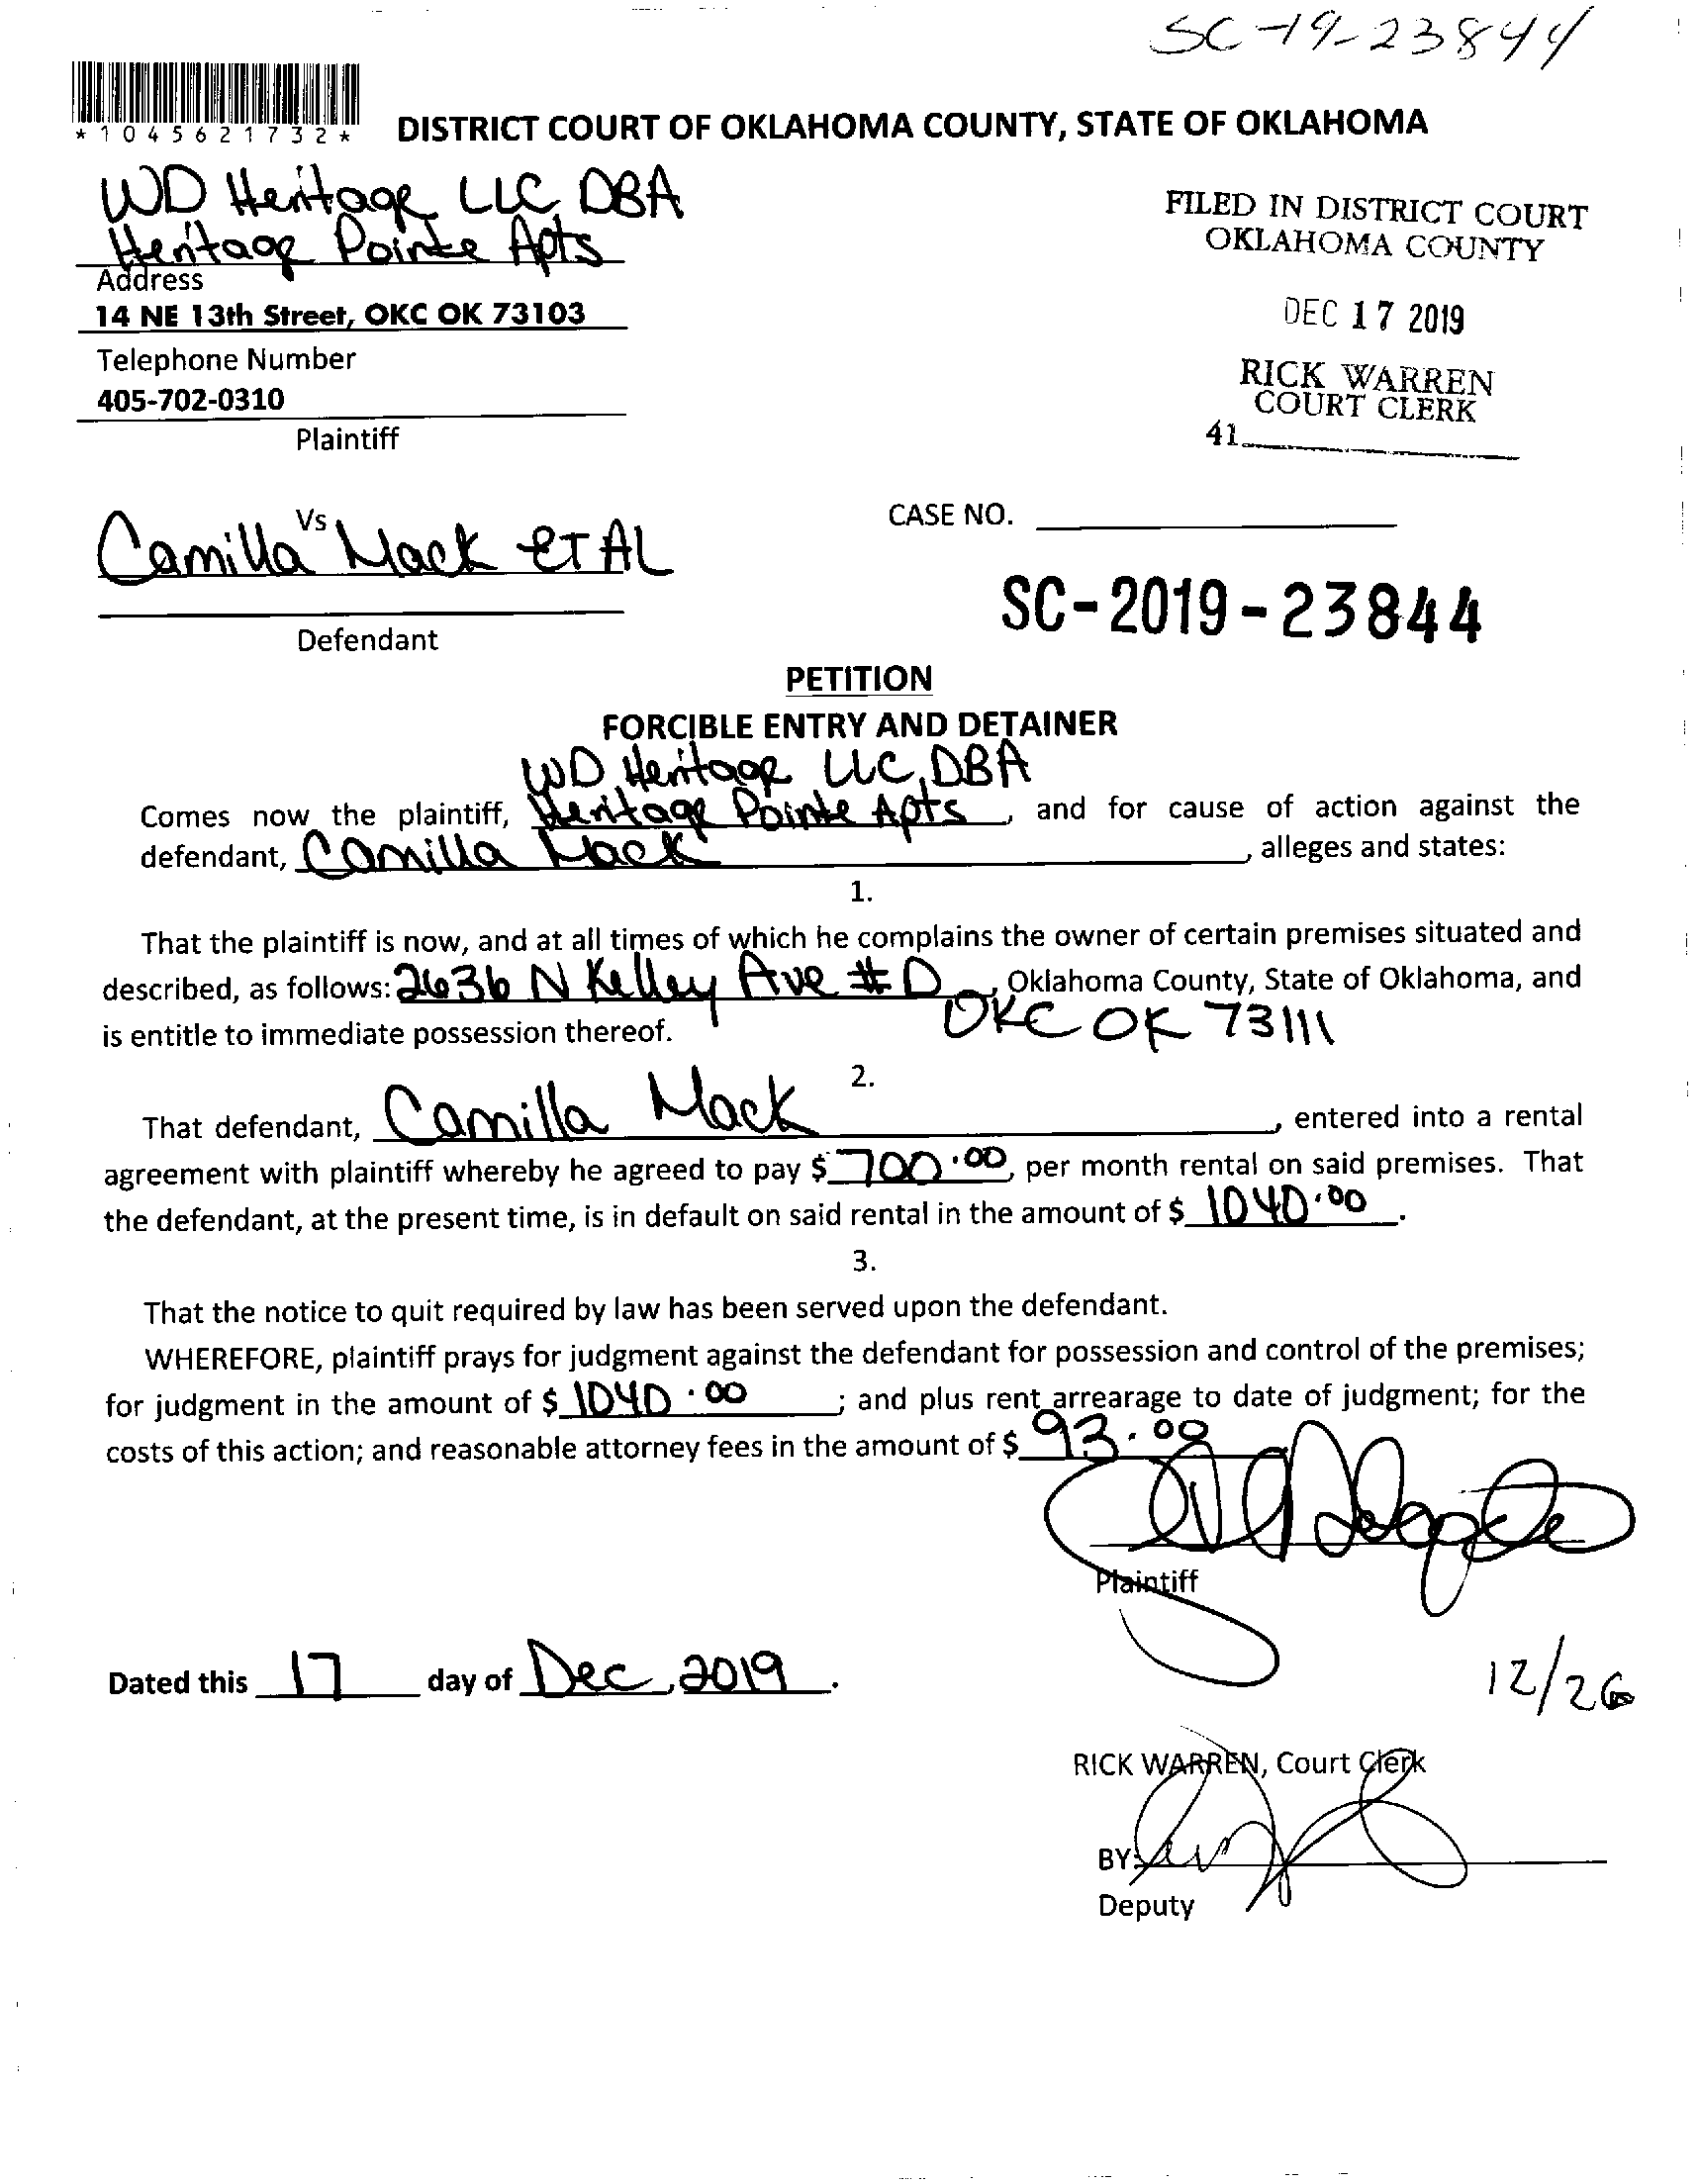 SC-19-23844
*1045621732*
DISTRICT COURT OF OKLAHOMA COUNTY, STATE OF OKLAHOMA
WD Heritage LLC DBA
Heritage Pointe Apts
Address
14 NE 13th Street, OKC OK 73103
Telephone Number
405-702-0310
Plaintiff
FILED IN DISTRICT COURT
OKLAHOMA COUNTY
DEC 17 2019
RICK WARREN
COURT CLERK
41
Vs
Camilla Mack et AL
Defendant
CASE NO.
SC-2019-23844
PETITION
FORCIBLE ENTRY AND DETAINER
WD Heritage LLC, DBA
Comes now the plaintiff, Heritage Pointe Apts, and for cause of action against the
defendant, Camilla Mack, alleges and states:
1.
That the plaintiff is now, and at all times of which he complains the owner of certain premises situated and
described, as follows: 2636 N Kelley Ave # D, Oklahoma County, State of Oklahoma, and
OKC OK 73111
is entitle to immediate possession thereof.
2.
That defendant, Camilla Mack, entered into a rental
agreement with plaintiff whereby he agreed to pay $ 700.00, per month rental on said premises. That
the defendant, at the present time, is in default on said rental in the amount of $ 1040.00.
3.
That the notice to quit required by law has been served upon the defendant.
WHEREFORE, plaintiff prays for judgment against the defendant for possession and control of the premises;
for judgment in the amount of $ 1040.00; and plus rent arrearage to date of judgment; for the
costs of this action; and reasonable attorney fees in the amount of $ 93.00
Plaintiff
Dated this 17 day of Dec, 2019.
12/26
RICK WARREN, Court Clerk
BY:
Deputy